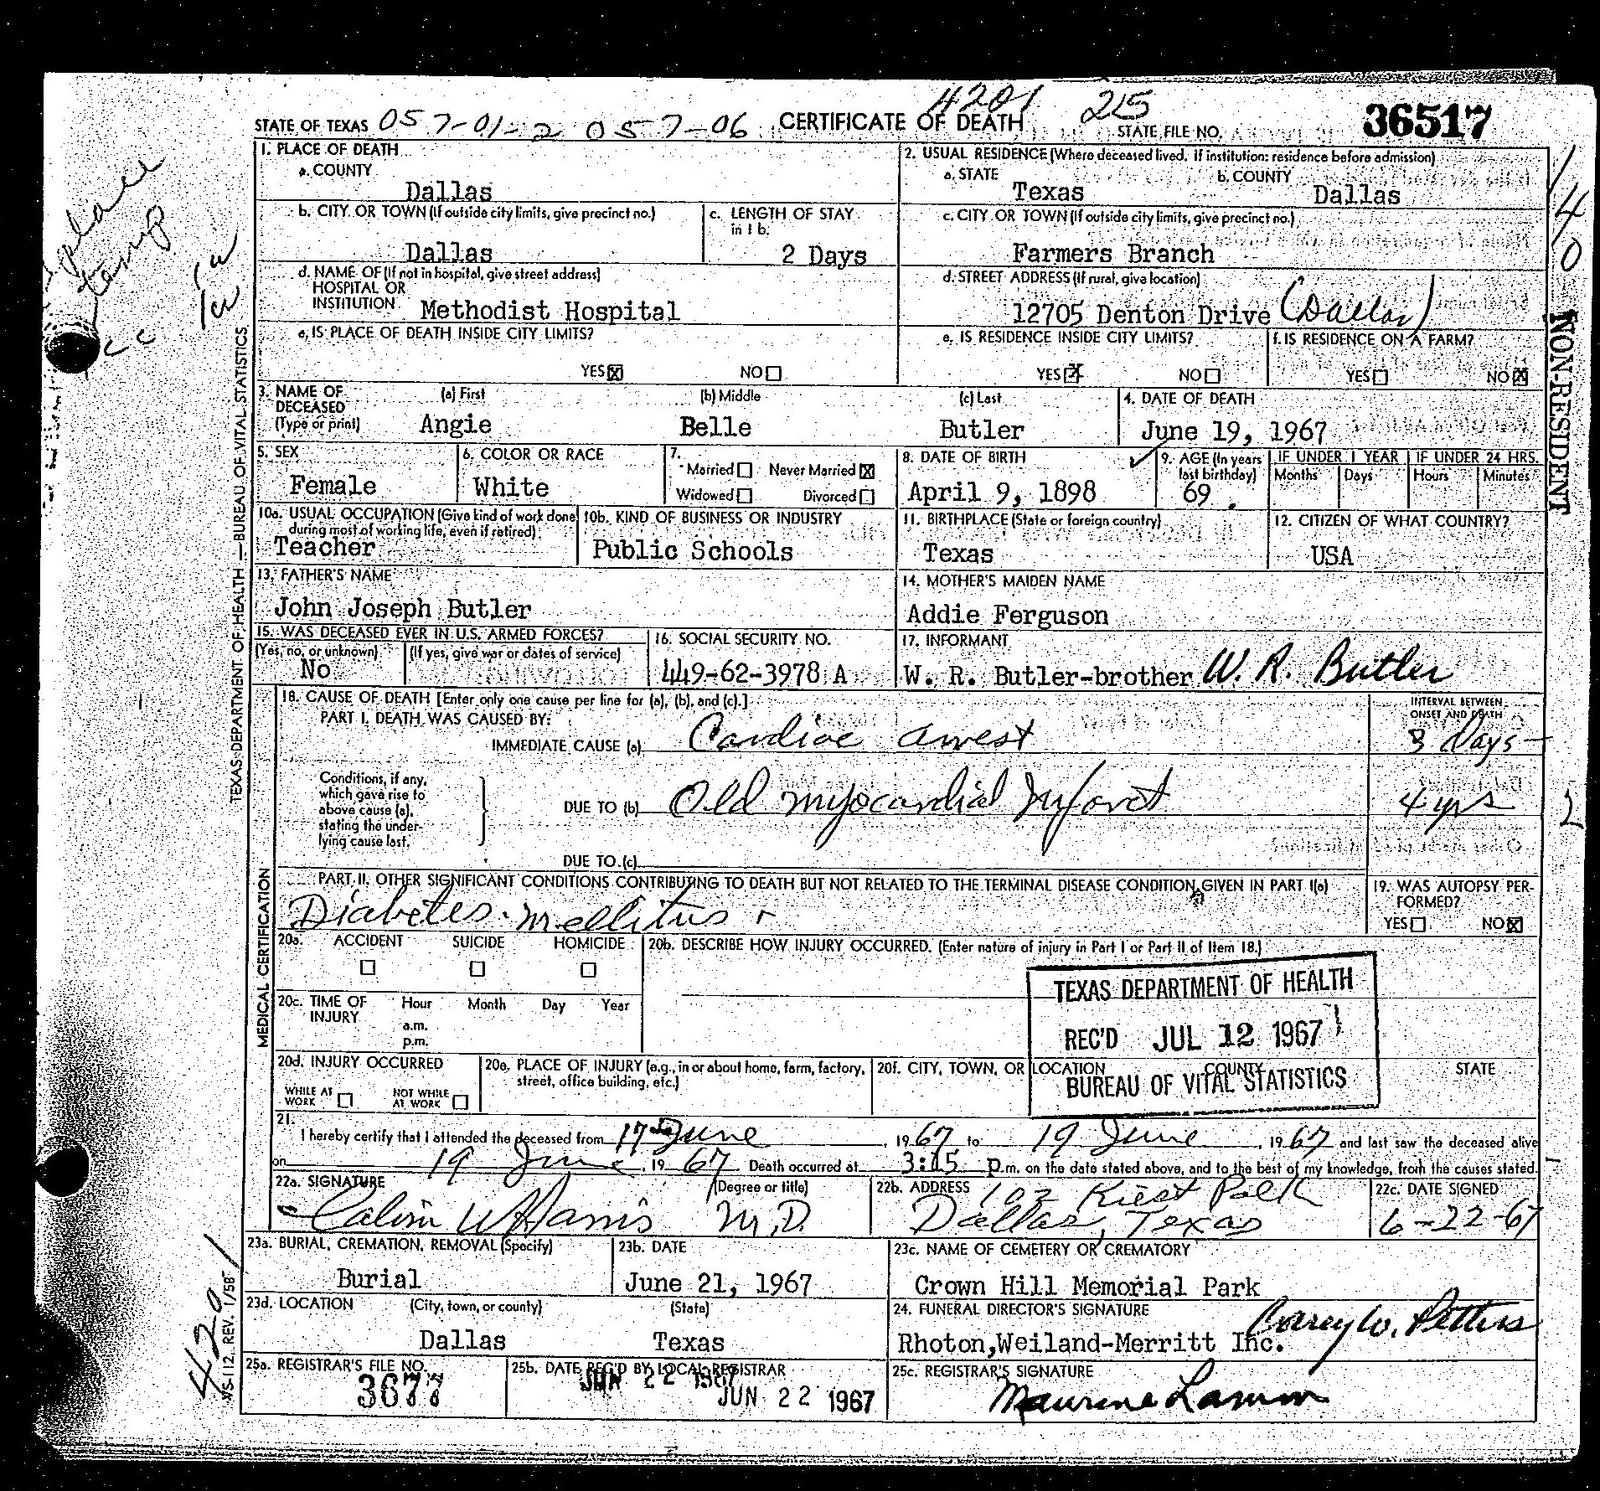 4201 215
STATE OF TEXAS 057-01-2 057-06 CERTIFICATE OF DEATH STATE FILE NO. 36517
1. PLACE OF DEATH
a. COUNTY
Dallas
2. USUAL RESIDENCE (Where deceased lived. If institution: residence before admission)
a. STATE b. COUNTY
Texas Dallas
b. CITY OR TOWN (If outside city limits, give precinct no.)
Dallas
c. LENGTH OF STAY
in 1 b.
2 Days
c. CITY OR TOWN (If outside city limits, give precinct no.)
Farmers Branch
d. NAME OF (If not in hospital, give street address)
HOSPITAL OR
INSTITUTION Methodist Hospital
d. STREET ADDRESS (If rural, give location)
12705 Denton Drive (Dallas)
e. IS PLACE OF DEATH INSIDE CITY LIMITS?
YES☒ NO☐
e. IS RESIDENCE INSIDE CITY LIMITS?
YES☒ NO☐
f. IS RESIDENCE ON A FARM?
YES☐ NO☒
3. NAME OF
DECEASED
(Type or print)
(a) First (b) Middle (c) Last
Angie Belle Butler
4. DATE OF DEATH
June 19, 1967
5. SEX
Female
6. COLOR OR RACE
White
7.
Married☐ Never Married☒
Widowed☐ Divorced☐
8. DATE OF BIRTH
April 9, 1898
9. AGE (In years
last birthday)
69
IF UNDER 1 YEAR
Months Days
IF UNDER 24 HRS.
Hours Minutes
10a. USUAL OCCUPATION (Give kind of work done
during most of working life, even if retired)
Teacher
10b. KIND OF BUSINESS OR INDUSTRY
Public Schools
11. BIRTHPLACE (State or foreign country)
Texas
12. CITIZEN OF WHAT COUNTRY?
USA
13. FATHER'S NAME
John Joseph Butler
14. MOTHER'S MAIDEN NAME
Addie Ferguson
15. WAS DECEASED EVER IN U.S. ARMED FORCES?
(Yes, no, or unknown) (If yes, give war or dates of service)
No
16. SOCIAL SECURITY NO.
449-62-3978 A
17. INFORMANT
W. R. Butler-brother W. R. Butler
18. CAUSE OF DEATH [Enter only one cause per line for (a), (b), and (c).]
PART I. DEATH WAS CAUSED BY:
IMMEDIATE CAUSE (a) Cardiac arrest
INTERVAL BETWEEN
ONSET AND DEATH
3 days
Conditions, if any,
which gave rise to
above cause (a),
stating the under-
lying cause last.
DUE TO (b) Old myocardial Infarct
4 yrs
DUE TO (c)
PART II. OTHER SIGNIFICANT CONDITIONS CONTRIBUTING TO DEATH BUT NOT RELATED TO THE TERMINAL DISEASE CONDITION GIVEN IN PART I(a)
Diabetes mellitus
19. WAS AUTOPSY PER-
FORMED?
YES☐ NO☒
20a. ACCIDENT SUICIDE HOMICIDE
☐ ☐ ☐
20b. DESCRIBE HOW INJURY OCCURRED. (Enter nature of injury in Part I or Part II of Item 18.)
20c. TIME OF
INJURY
Hour Month Day Year
a.m.
p.m.
TEXAS DEPARTMENT OF HEALTH
REC'D JUL 12 1967
BUREAU OF VITAL STATISTICS
20d. INJURY OCCURRED
WHILE AT
WORK ☐
NOT WHILE
AT WORK ☐
20e. PLACE OF INJURY (e.g., in or about home, farm, factory,
street, office building, etc.)
20f. CITY, TOWN, OR LOCATION COUNTY STATE
21.
I hereby certify that I attended the deceased from 17 June, 1967 to 19 June, 1967 and last saw the deceased alive
on 19 June, 1967. Death occurred at 3:15 p.m. on the date stated above, and to the best of my knowledge, from the causes stated.
22a. SIGNATURE (Degree or title)
M.D.
22b. ADDRESS 102 Kiest
Dallas, Texas
22c. DATE SIGNED
6-22-67
23a. BURIAL, CREMATION, REMOVAL (Specify)
Burial
23b. DATE
June 21, 1967
23c. NAME OF CEMETERY OR CREMATORY
Crown Hill Memorial Park
23d. LOCATION (City, town, or county) (State)
Dallas Texas
24. FUNERAL DIRECTOR'S SIGNATURE
Rhoton,Weiland-Merritt Inc.
25a. REGISTRAR'S FILE NO.
3677
25b. DATE REC'D BY LOCAL REGISTRAR
JUN 22 1967
JUN 22 1967
25c. REGISTRAR'S SIGNATURE
TEXAS DEPARTMENT OF HEALTH — BUREAU OF VITAL STATISTICS
MEDICAL CERTIFICATION
VS-112, REV. 1/58
4201
NON-RESIDENT
140
2